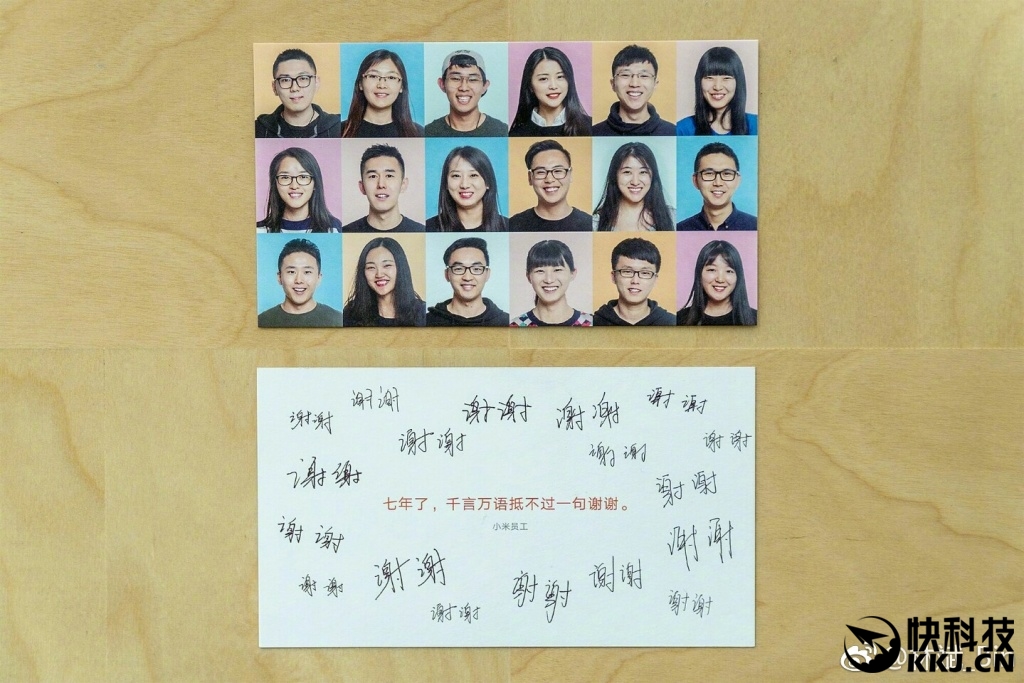 谢谢
谢谢
谢谢
谢谢
谢谢
谢谢
谢谢
谢谢
谢谢
谢谢
七年了，千言万语抵不过一句谢谢。
小米员工
谢谢
谢谢
谢谢
谢谢
谢谢
谢谢
谢谢
谢谢
快科技
KKJ.CN